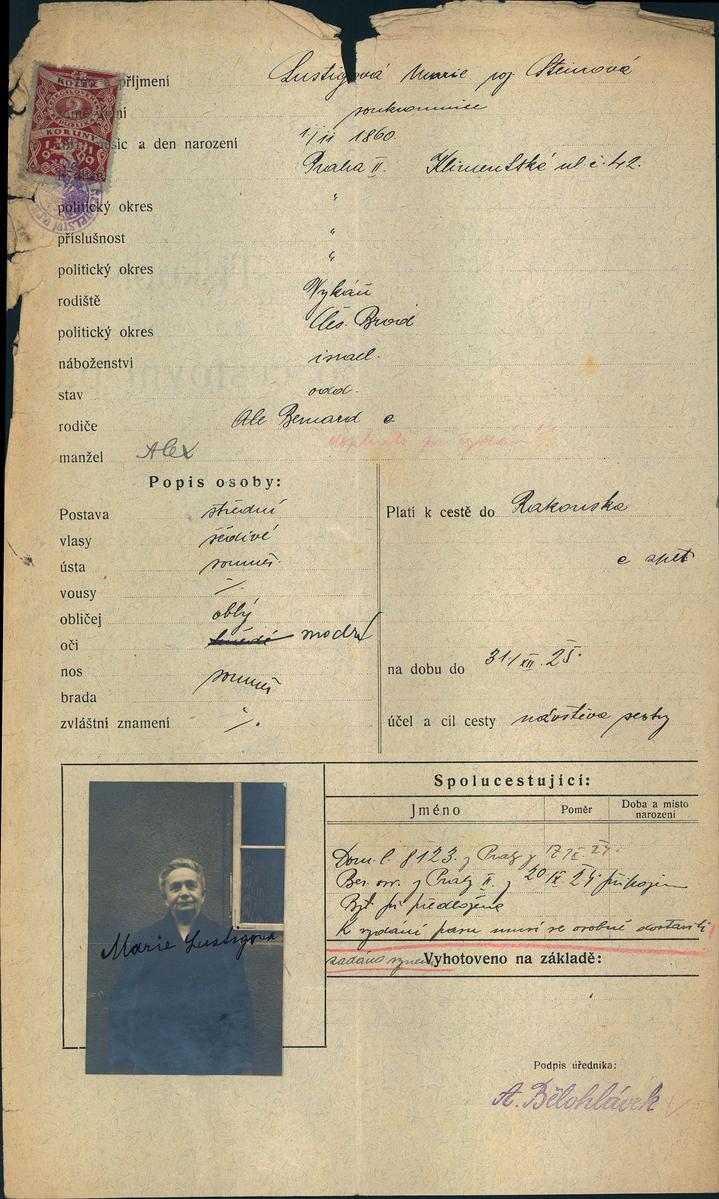 příjmení Lustigová Marie roz. Steinová
soukromnice
měsíc a den narození 1/11 1860.
Praha II. Klimentská ul. č. 42.
politický okres "
příslušnost "
politický okres "
rodiště Vykáň
politický okres Čes. Brod
náboženství israel.
stav vdd.
rodiče Bernard a
manžel Alex
Popis osoby:
Postava střední
vlasy šedivé
ústa souměr.
vousy ./.
obličej oblý
oči hnědé modré
nos souměr
brada
zvláštní znamení ./.
Platí k cestě do Rakouska
a zpět
na dobu do 31/XII. 25.
účel a cíl cesty návštěva sestry
Spolucestující:
Jméno Poměr Doba a místo narození
Dom. l. 8123 z Prahy z 24.
z Prahy II. z 20/IX 24 připojen
Být předložena
K vydání pasu musí se osobně dostaviti
zadáno Vyhotoveno na základě:
Marie Lustigová
Podpis úředníka:
A. Bělohlávek
KOLEK
2
KORUNY